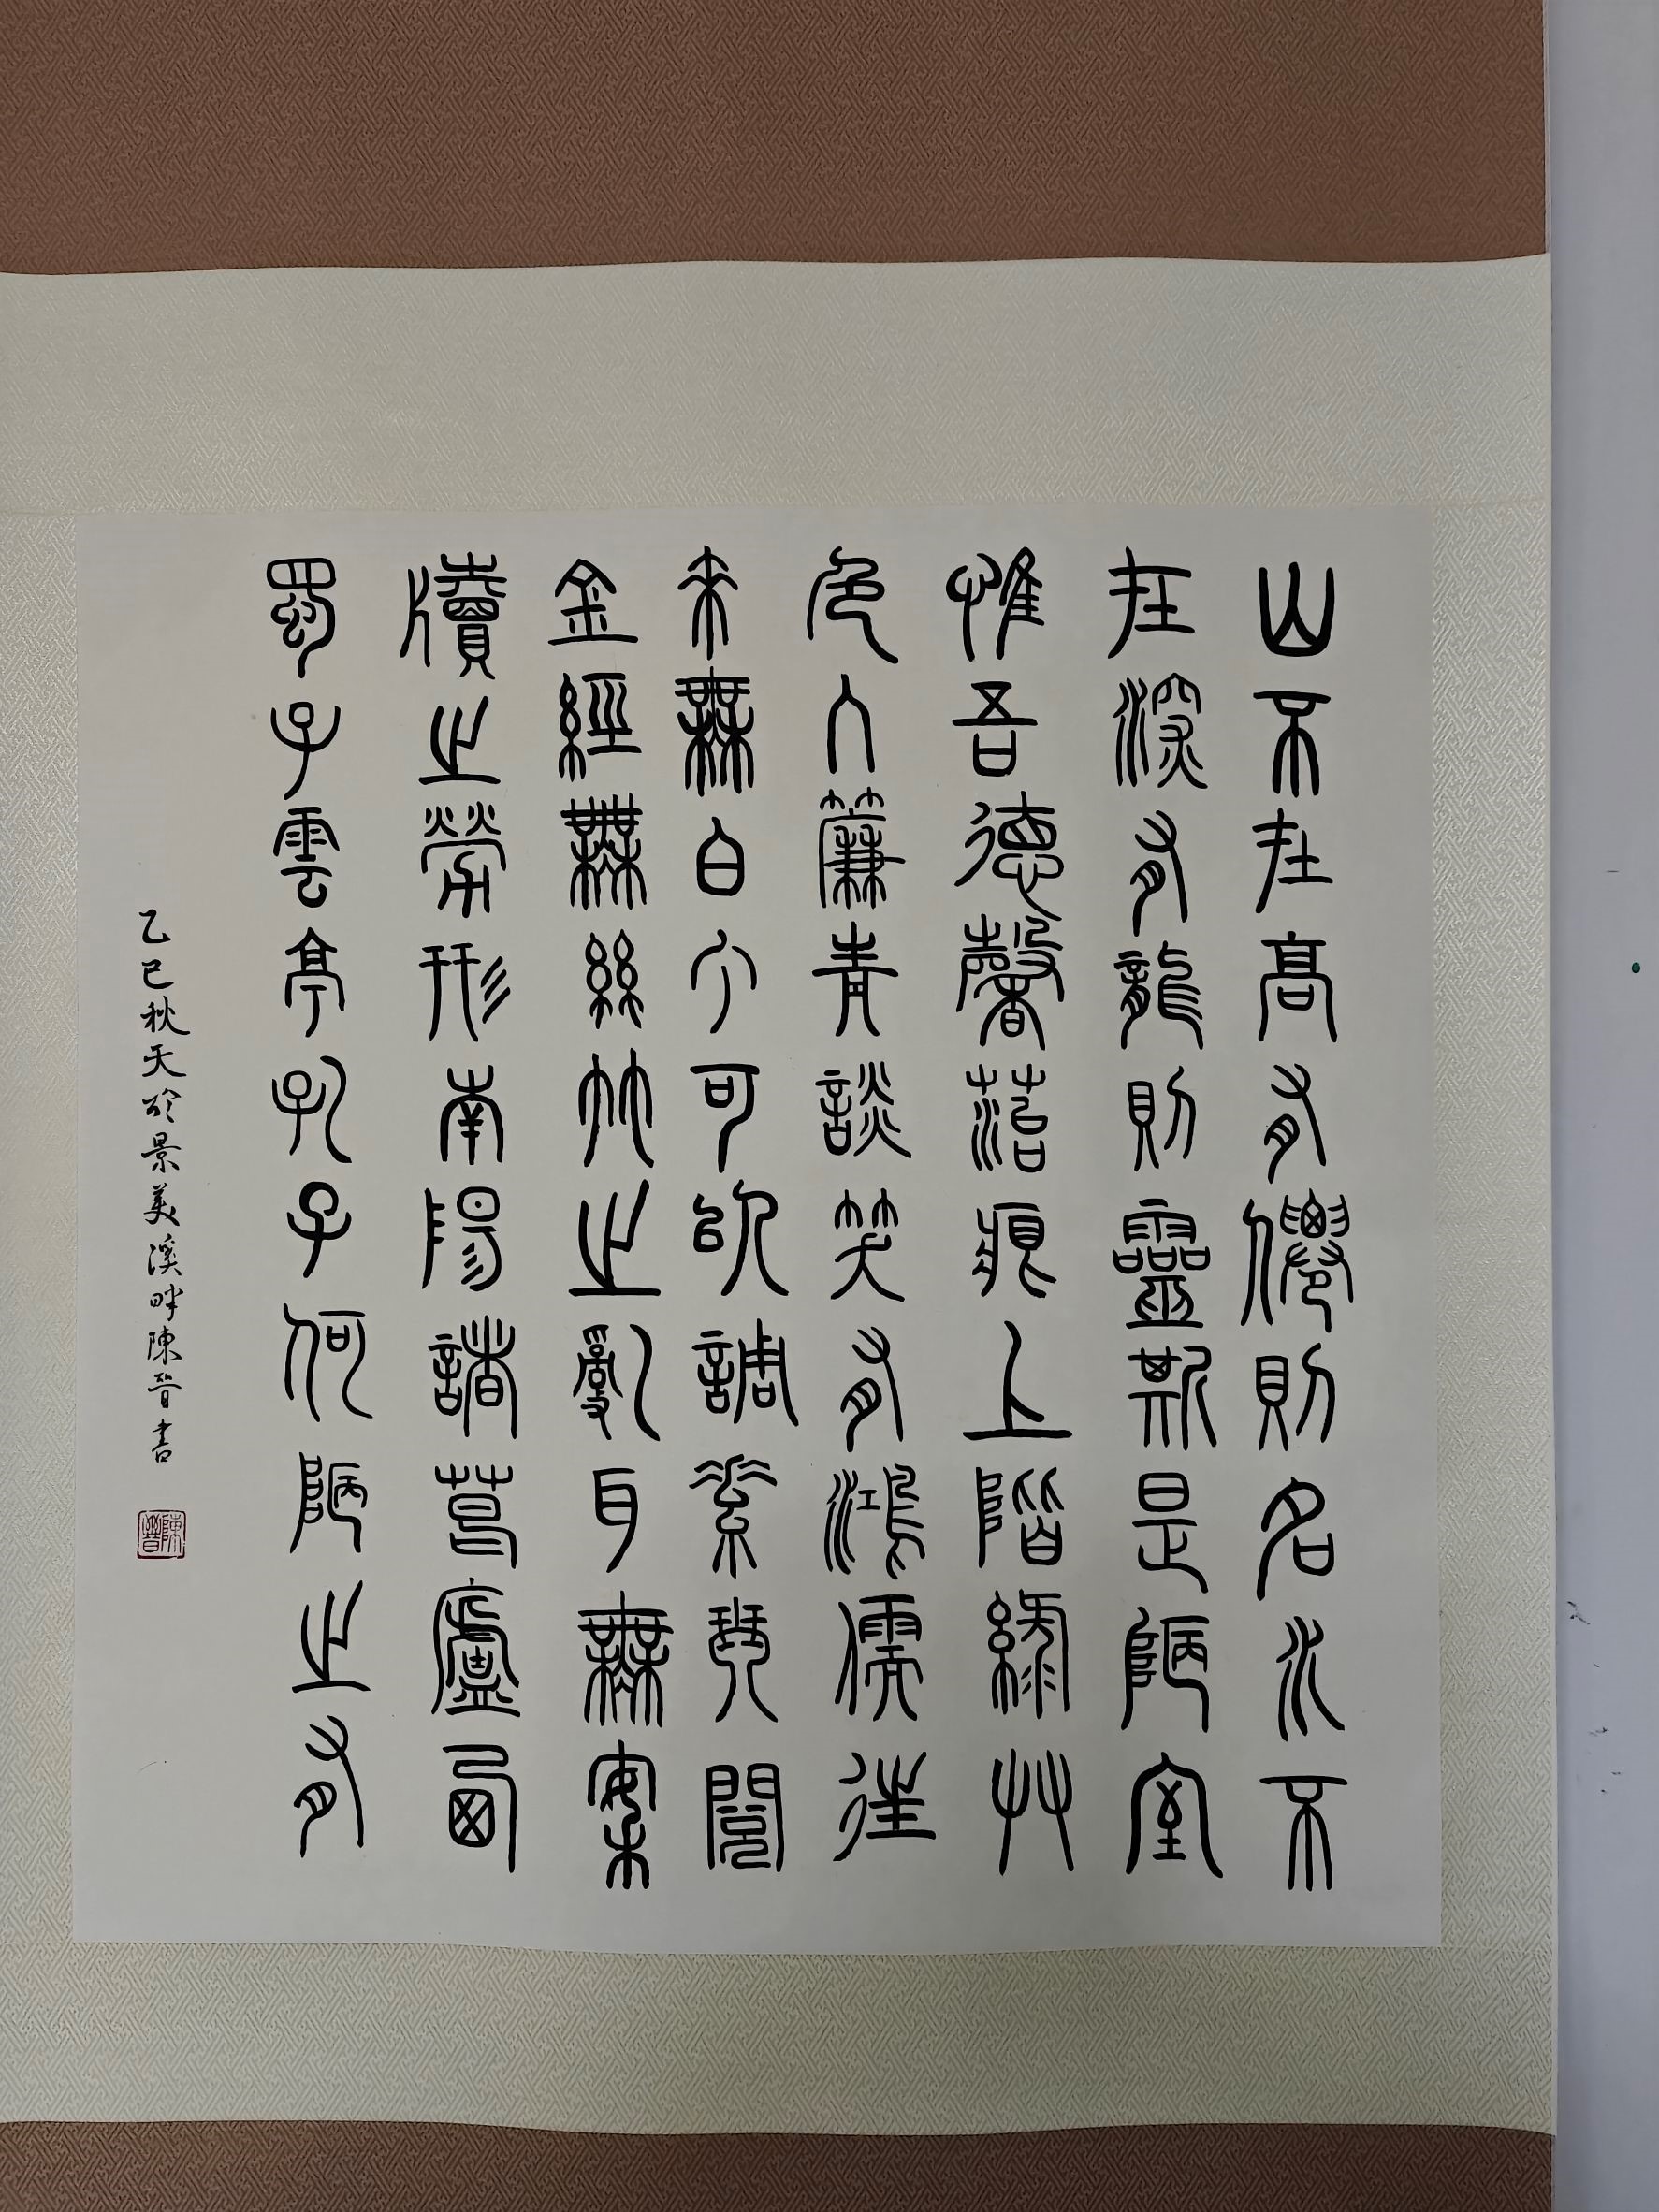 山不在高有僊則名水不
在深有龍則靈斯是陋室
惟吾德馨菭痕上階綠艸
色入簾青談笑有鴻儒往
來無白丁可以調素琴閱
金經無絲竹之亂耳無案
牘之勞形南陽諸葛廬西
蜀子雲亭孔子何陋之有
乙巳秋天於景美溪畔陳晉書
陳晉